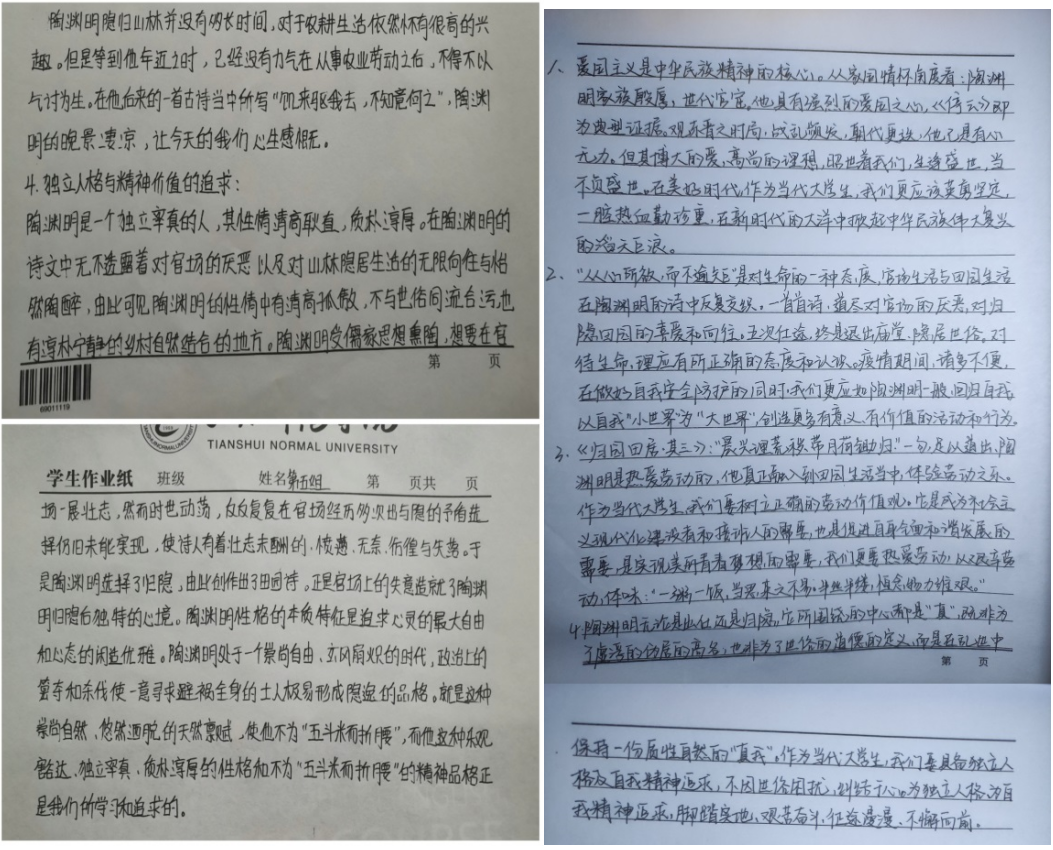 陶渊明隐归山林并没有多长时间，对于农耕生活依然怀有很高的兴
趣。但是等到他年近之时，已经没有力气在从事农业劳动之后，不得不以
乞讨为生。在他后来的一首古诗当中所写“饥来驱我去，不知竟何之”，陶渊
明的晚景凄凉，让今天的我们心生感慨。
4.独立人格与精神价值的追求：
陶渊明是一个独立率真的人，其性情清高耿直，质朴淳厚。在陶渊明的
诗文中无不透露着对官场的厌恶以及对山林隐居生活的无限向往与怡
然陶醉，由此可见陶渊明的性情中有清高孤傲，不与世俗同流合污，也
有淳朴宁静的乡村自然结合的地方。陶渊明受儒家思想熏陶，想要在官
第 页
69011119
TIANSHUI NORMAL UNIVERSITY
学生作业纸 班级 姓名 第五组 第 页共 页
场一展壮志，然而时世动荡，反反复复在官场经历多次出与隐的矛盾选
择仍旧未能实现，使诗人有着壮志未酬的、愤懑、无奈、彷徨与失落。于
是陶渊明选择了归隐，由此创作出了田园诗。正是官场上的失意造就了陶渊
明归隐后独特的心境。陶渊明性格的本质特征是追求心灵的最大自由
和心态的闲适优雅。陶渊明处于一个崇尚自由、玄风扇炽的时代，政治上的
篡夺和杀伐使一意寻求避祸全身的士人极易形成隐逸的品格。就是这种
崇尚自然、悠然洒脱的天然禀赋，使他不为“五斗米而折腰”，而他这种乐观
豁达、独立率真、质朴淳厚的性格和不为“五斗米而折腰”的精神品格正
是我们所学习和追求的。
1、爱国主义是中华民族精神的核心。从家国情怀角度看：陶渊
明家族殷厚，世代官宦，他具有强烈的爱国之心，《停云》即
为典型证据。观东晋之时局，战乱频发，朝代更迭，他已具有心
无力。但其博大的爱、高尚的理想，昭也着我们，生逢盛世，当
不负盛世。在美好时代，作为当代大学生，我们更应该英勇坚定，
一腔热血勤珍重，在新时代的大洋中掀起中华民族伟大复兴
的滔天巨浪。
2、“从心所欲，而不逾矩”是对生命的一种态度，官场生活与田园生活
在陶渊明的诗中反复交织。一首首诗，蕴尽对官场的厌恶，对归
隐田园的喜爱和向往。五次仕途，终是退出庙堂，隐居世俗。对
待生命，理应有所正确的态度和认识。疫情期间，诸多不便，
在做好自我安全防护的同时，我们更应如陶渊明一般，回归自我
以自我“小世界”为“大世界”，创造更多有意义、有价值的活动和行为。
3、《归园田居·其三》：“晨兴理荒秽，带月荷锄归。”一句，足以道出，陶
渊明是热爱劳动的，他真正融入到田园生活当中，体验劳动之乐。
作为当代大学生，我们要树立正确的劳动价值观。它是成为社会主
义现代化建设者和接班人的需要，也是促进自身全面和谐发展的
需要，是实现美所青春梦想的需要，我们更要热爱劳动，从艰辛劳
动，体味：“一粥一饭，当思来之不易；半丝半缕，恒念物力维艰。”
4、陶渊明无论是出仕还是归隐，它所围绕的中心都是“真”，既非为
了虚渺的隐居的高名，也非为了世俗的道德的定义，而是在乱世中
第 页
保持一份质性自然的“真我”。作为当代大学生，我们要具备独立人
格及自我精神追求，不因世俗困扰，纠结于心。为独立人格，为自
我精神追求，脚踏实地，艰苦奋斗，征途漫漫，不懈向前。